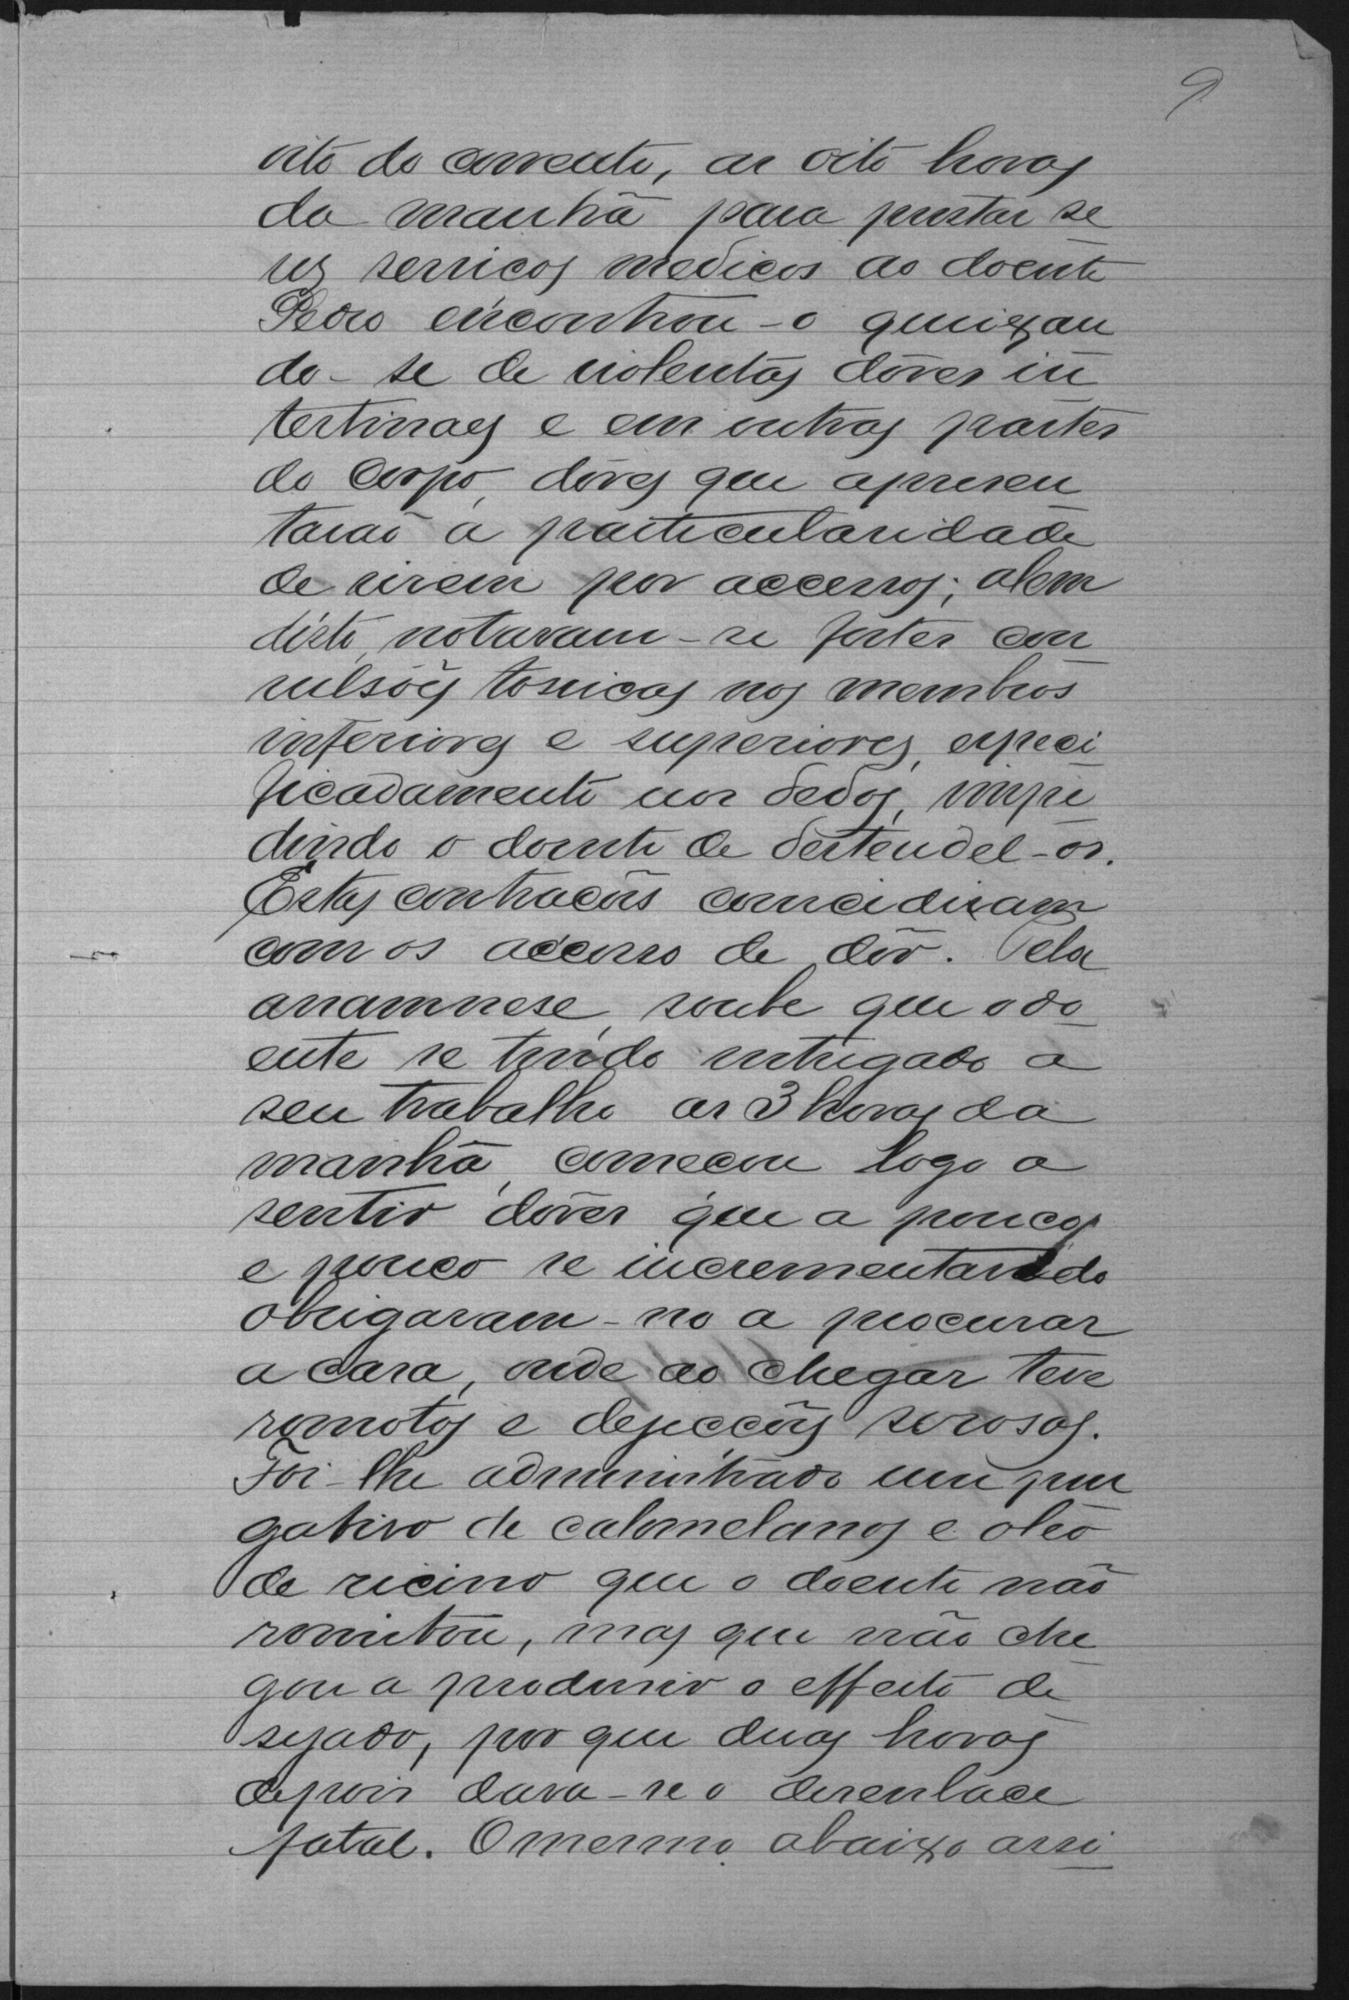 9
oito do corrente, as oito horas
da manhã para prestar se
us serviços medicos ao doente
Pedro encontrou-o queixan
do-se de violentas dôres in
testinaes e em outras partes
do corpo, dôres que apresen
tavaõ a particularidade
de virem por accessos; alem
disto, notavam-se fortes con
vulsões tonicas nos membros
inferiores e superiores, especi
ficadamente nos dedos, impe
dindo o doente de destendel-os.
Estas contracões coincidiram
com os accesso de dôr. Pela
anamnese, soube que o do
ente se tendo entregado a
seu trabalho as 3 horas da
manhã, comecou logo a
sentir dôres que a pouco
e pouco se incrementando
obrigaram-no a procurar
a casa, onde ao chegar teve
vomitos e dejeccões serosas.
Foi-lhe administrado um pur
gativo de calomelanos e oleo
de ricino que o doente não
vomitou, mas que não che
gou a produsir o effeito de
sejado, por que duas horas
depois dava-se o desenlace
fatal. O mesmo abaixo assi